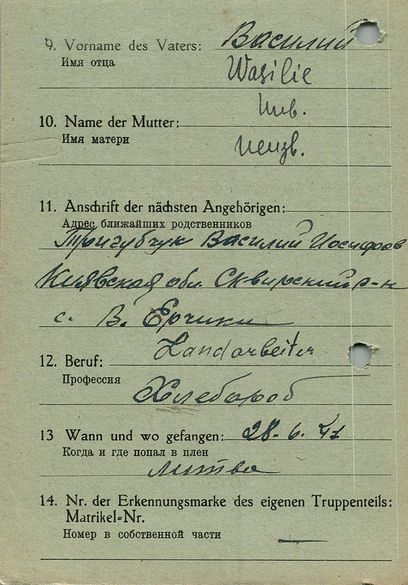 9. Vorname des Vaters: Василий
Имя отца
Wasilie
Unb.
10. Name der Mutter:
Имя матери
Неизв.
11. Anschrift der nächsten Angehörigen:
Адрес ближайших родственников
Тригубчук Василий Иосифов
Киявская обл. Сквирский р-н
с. В. Ерчики
12. Beruf: Landarbeiter
Профессия
Хлебороб
13 Wann und wo gefangen: 28.6.41
Когда и где попал в плен
Литва
14. Nr. der Erkennungsmarke des eigenen Truppenteils:
Matrikel-Nr.
Номер в собственной части —